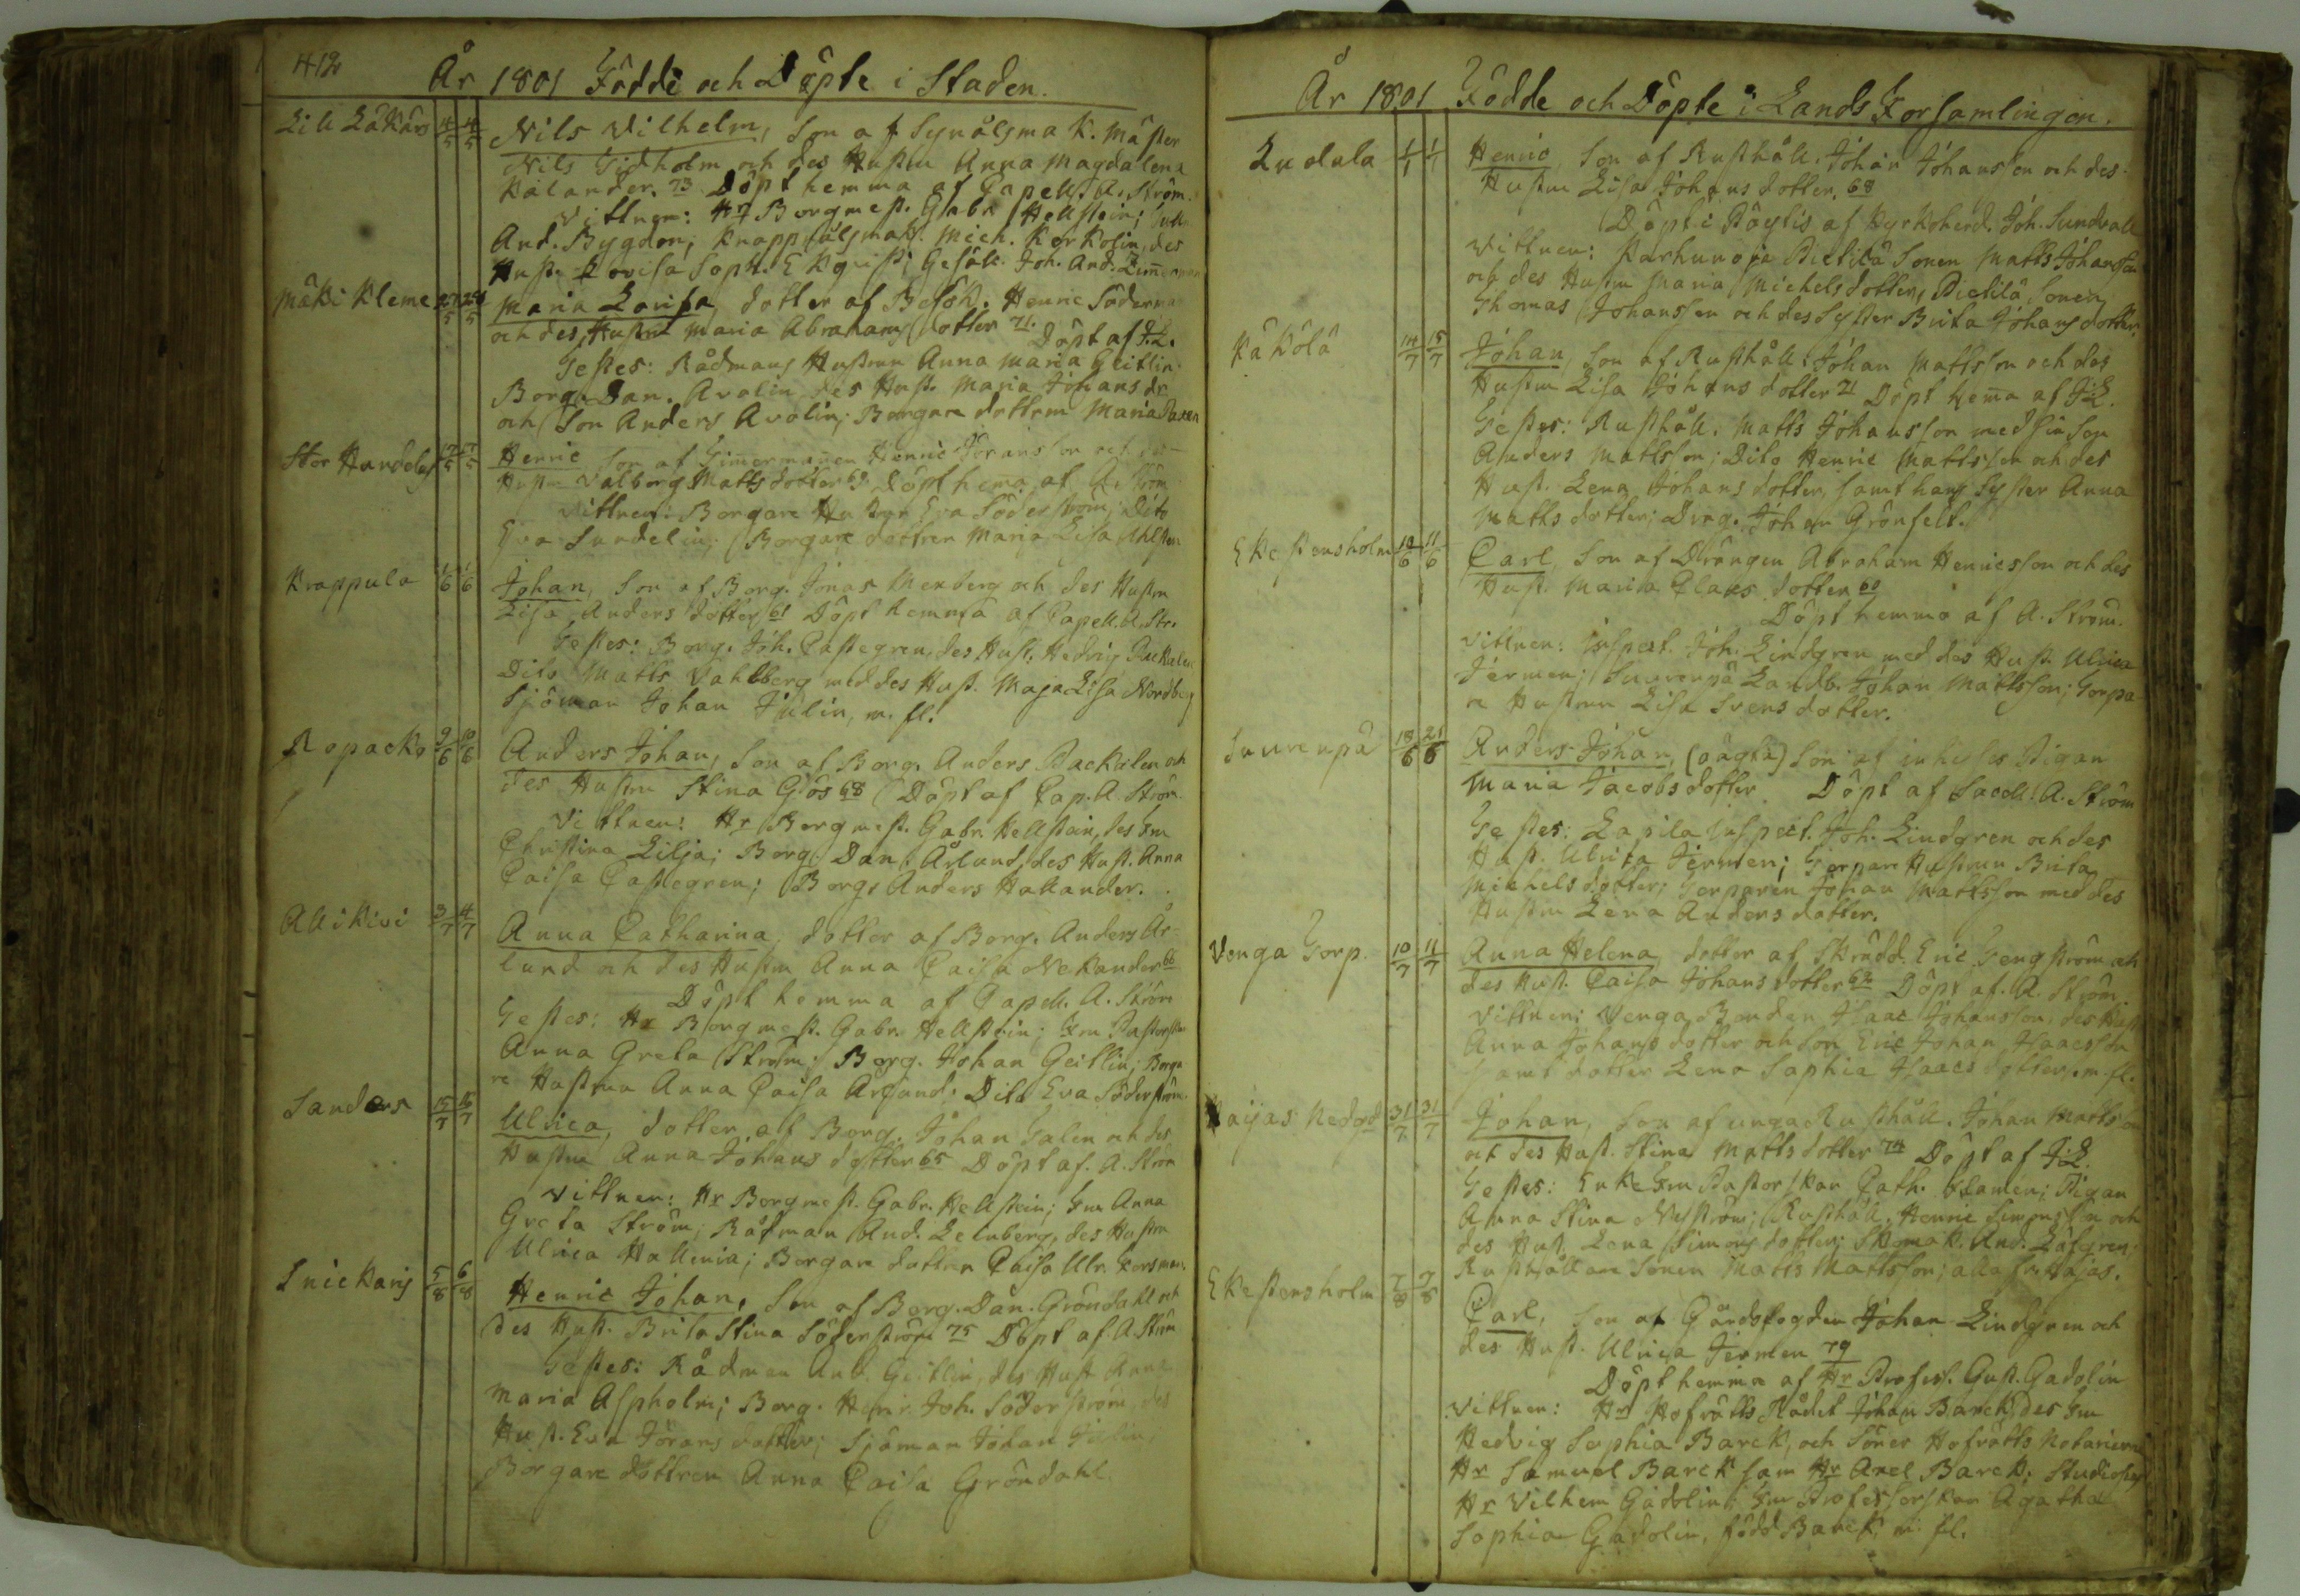 412
År 1801 Födde och Döpte i Staden.
Lill Läkärs 4/5 4/5 Nils Vilhelm, Son af Synålsmak. Mäster
Nils Gidholm och des Hustru Anna Magdalena
Kalander. 73 Döpt hemma af Capell. A. Ström.
Vittnen: Hr Borgmest. Gabr. Hellstein;
And. Bygdén; Knappnålsmak. Mich. Korkolin, des
Hust. Lovisa Soph. Ekqvist; Gesäll. Joh. And. Zimmerman
Mäki Kleme 27/5 28/5 Maria Lovisa, dotter af Besök. Henric Söderman
och des Hustru Maria Abrahams dotter 71. Döpt af J. L.
Testes: Rådmans Hustrun Anna Maria Geitlin
Borg. Dan. Avolin, des Hust. Maria Johans dr
och Son Anders Avolin; Borgare dottern Maria
Stor Handelas 17/5 17/5 Henric Son af Timermanen Henric Göransson och des
Hustru Valborg Matts dotter 63. Döpt hema af A. Ström
Vittnen: Borgare Hustrun Eva Söderström; Dito
Eva Sundelin; Borgare dottren Maria Lisa Ahlsten
Krappula 1/6 1/6 Johan, Son af Borg. Jonas Mexberg och des Hustru
Lisa Anders dotter 61 Döpt hemma af Capell. A. Str.
Testes: Borg. Joh. Castegren, des Hust. Hedvig Packalen
Dito Matts Vahlberg med des Hust. Maja Lisa Nordberg
Sjöman Johan Julin, m. fl.
Ropacko 9/6 10/6 Anders Johan, Son af Borg. Anders Packalen och
des Hustru Stina Gös 68 Döpt af Cap. A. Ström.
Vittnen: Hr Borgmest. Gabr. Hellstein, des Fru
Christina Lilja; Borg. Dan. Åslund, des Hust. Anna
Caisa Castegren; Borg. Anders Hallander.
Allikivi 3/7 4/7 Anna Catharina, dotter af Borg. Anders Ås-
lund och des Hustru Anna Caisa Nekander 66
Döpt hemma af Capell. A. Ström
Testes: Hr Borgmest. Gabr. Hellstein; Fru Pastorskan
Anna Greta Ström; Borg. Johan Geitlin; Borga
re Hustrun Anna Caisa Åslund. Dito Eva Söderström.
Sanders 15/7 16/7 Ulrica, dotter af Borg. Johan Galen och des
Hustru Anna Johans dotter 65 Döpt af A. Ström
Vittnen: Hr Borgmest. Gabr. Hellstein; Fru Anna
Greta Ström; Rådman And. Lernberg, des Hustru
Ulrica Hallenia; Borgare dottren Caisa Ulr. Forsman.
Snickars 5/8 6/8 Henric Johan, Son af Borg. Dan. Gröndahl och
des Hust. Brita Stina Söderström 75 Döpt af A. Ström
Testes: Rådman And. Geitlin, des Hust. Anna
Maria Aspholm; Borg. Henr. Joh. Söderström, des
Hust. Eva Görans dotter; Sjöman Johan Julin,
Borgare dottren Anna Caisa Gröndahl
År 1801 Födde och Döpte i Lands Forsamlingen.
Ludula 1/7 1/7 Henric, Son af Rusthåll. Johan Johansson och des
Hustru Lisa Johans dotter. 68
Döpt i Pöytis af Kyrkoherd. Joh. Sundvall
Vittnen: Karhunoja Pietilä Sonen Matts Johansson
och des Hustru Maria Michels dotter, Pietilä Sonen
Thomas Johansson och des Syster Brita Johans dotter.
Käkölä 14/7 15/7 Johan, Son af Rusthåll. Johan Mattsson och des
Hustru Lisa Johans dotter 71 Döpt hema af J. L.
Testes: Rusthåll. Matts Johansson med sin Son
Anders Mattsson; Dito Henric Mattsson och des
Hust. Lena Johans dotter, samt hans Syster Anna
Matts dotter; Dräng. Johan Grönfelt.
Ekestensholm 10/6 11/6 Carl, Son af Drängen Abraham Henricsson och des
Hust. Maria Claes dotter 60
Döpt hemma af A. Ström.
Vittnen: Inspect. Joh. Lindgren med des Hust. Ulrica
Jermen; Suurenpä Landb. Johan Mattsson; Torpa
re Hustrun Lisa Svens dotter.
Suurenpä 18/6 21/6 Anders Johan, (oägta) Son af inhyses Pigan
Maria Jacobs dotter Döpt af Sacell. A. Ström
Testes: Lapila Inspect. Joh. Lindgren och des
Hust. Ulrika Jermen; Torpare Hustrun Brita
Michels dotter; Torparen Johan Mattsson med des
Hustru Lena Anders dotter.
Venga Torp. 10/7 11/7 Anna Helena, dotter af Skrädd. Eric Tengström och
des Hust. Caisa Johans dotter 62 Döpt af A. Ström.
Vittnen: Venga Bonden Isaac Johansson, des Hust.
Anna Johans dotter och Son Eric Johan Isaacsson
samt dotter Lena Sophia Isaacs dotter, m. fl.
Haijas Nedgd 31/7 31/7 Johan, Son af unga Rusthåll. Johan Mattsson
och des Hust. Stina Matts dotter 74 Döpt af J. L.
Testes: Enke Fru Pastorskan Cath. Flamen; Pigan
Anna Stina Nyström; Rusthåll. Henric Simonsson och
des Hust. Lena Simons dotter; Skomak. And. Löfgren;
Rusthållare Sonen Matts Mattsson; alla fr. Hajas.
Ekestensholm 7/8 7/8 Carl, Son af Gårdsfogden Johan Lindgren och
des Hust. Ulrica Jermen 79
Döpt hemma af Hr Profess. Gust. Gadolin
Vittnen: Hr Hofrätts Rådet Johan Barck, des Fru
Hedvig Sophia Barck, och Söner Hofrätts Notarien
Hr Samuel Barck sam Hr Axel Barck; Studiosus
Hr Vilhem Gadolin; Fru Professorskan Agatha
Sophia Gadolin, född Barck, m. fl.